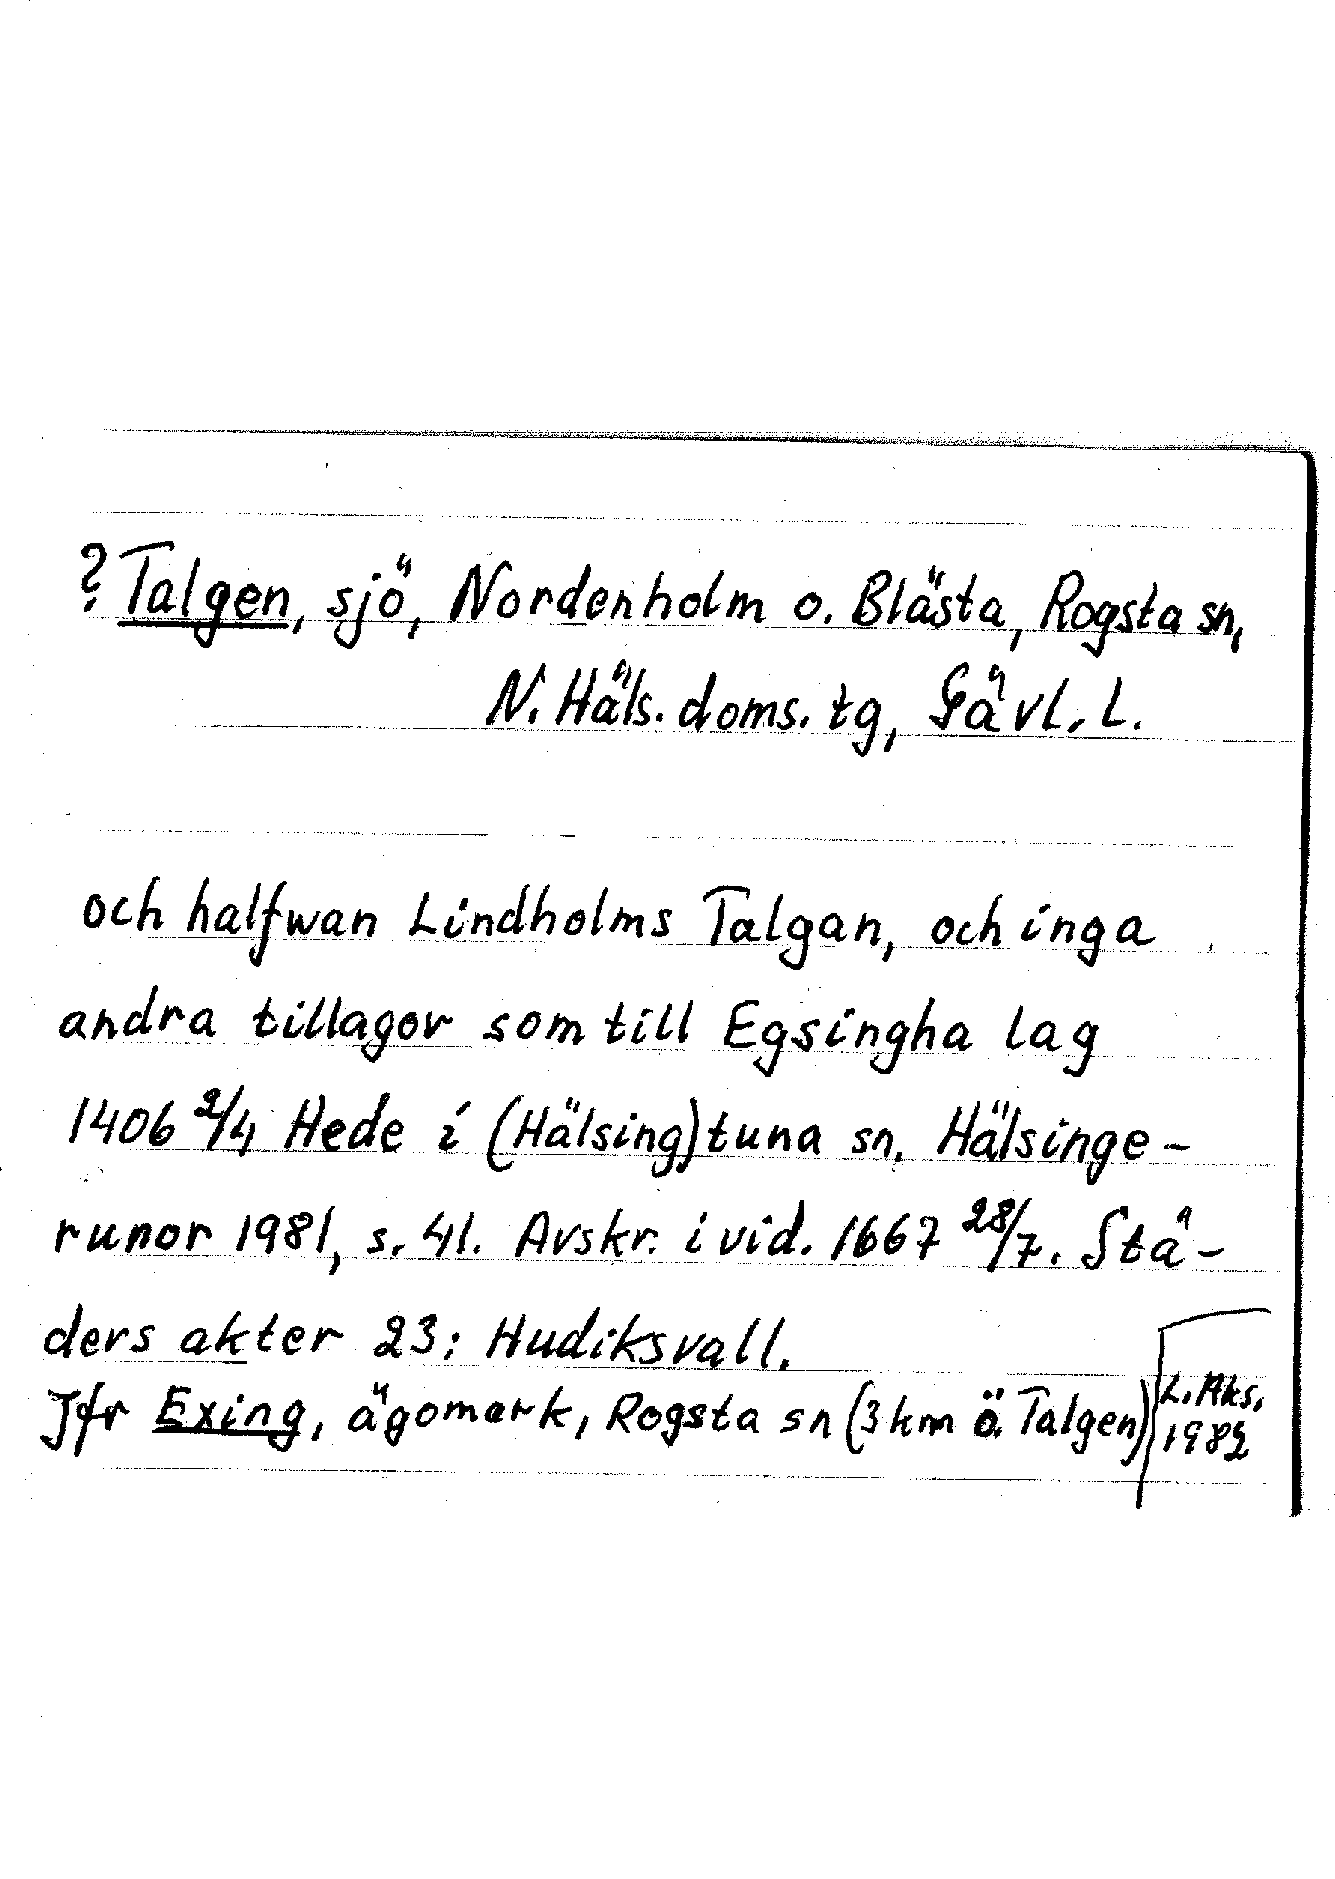 ? Talgen, sjö, Nordenholm o. Blästa, Rogsta sn,
N. Häls. doms. tg, Gävl. L.
och halfwan Lindholms Talgan, och inga
andra tillagor som till Egsingha lag
1406 2/4 Hede i (Hälsing)tuna sn. Hälsinge-
runor 1981, s. 41. Avskr. i vid. 1667 28/7. Stä-
ders akter 23: Hudiksvall.
Jfr Exing, ägomark, Rogsta sn (3 km ö. Talgen)
L. Aks.
1982